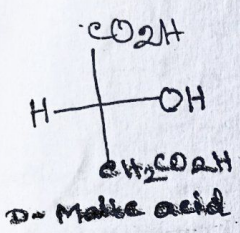 CO2H
H OH
CH2CO2H
D- Malic acid